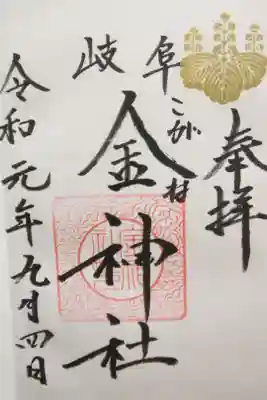 奉拝
岐阜
こがね
金神社
令和元年九月四日